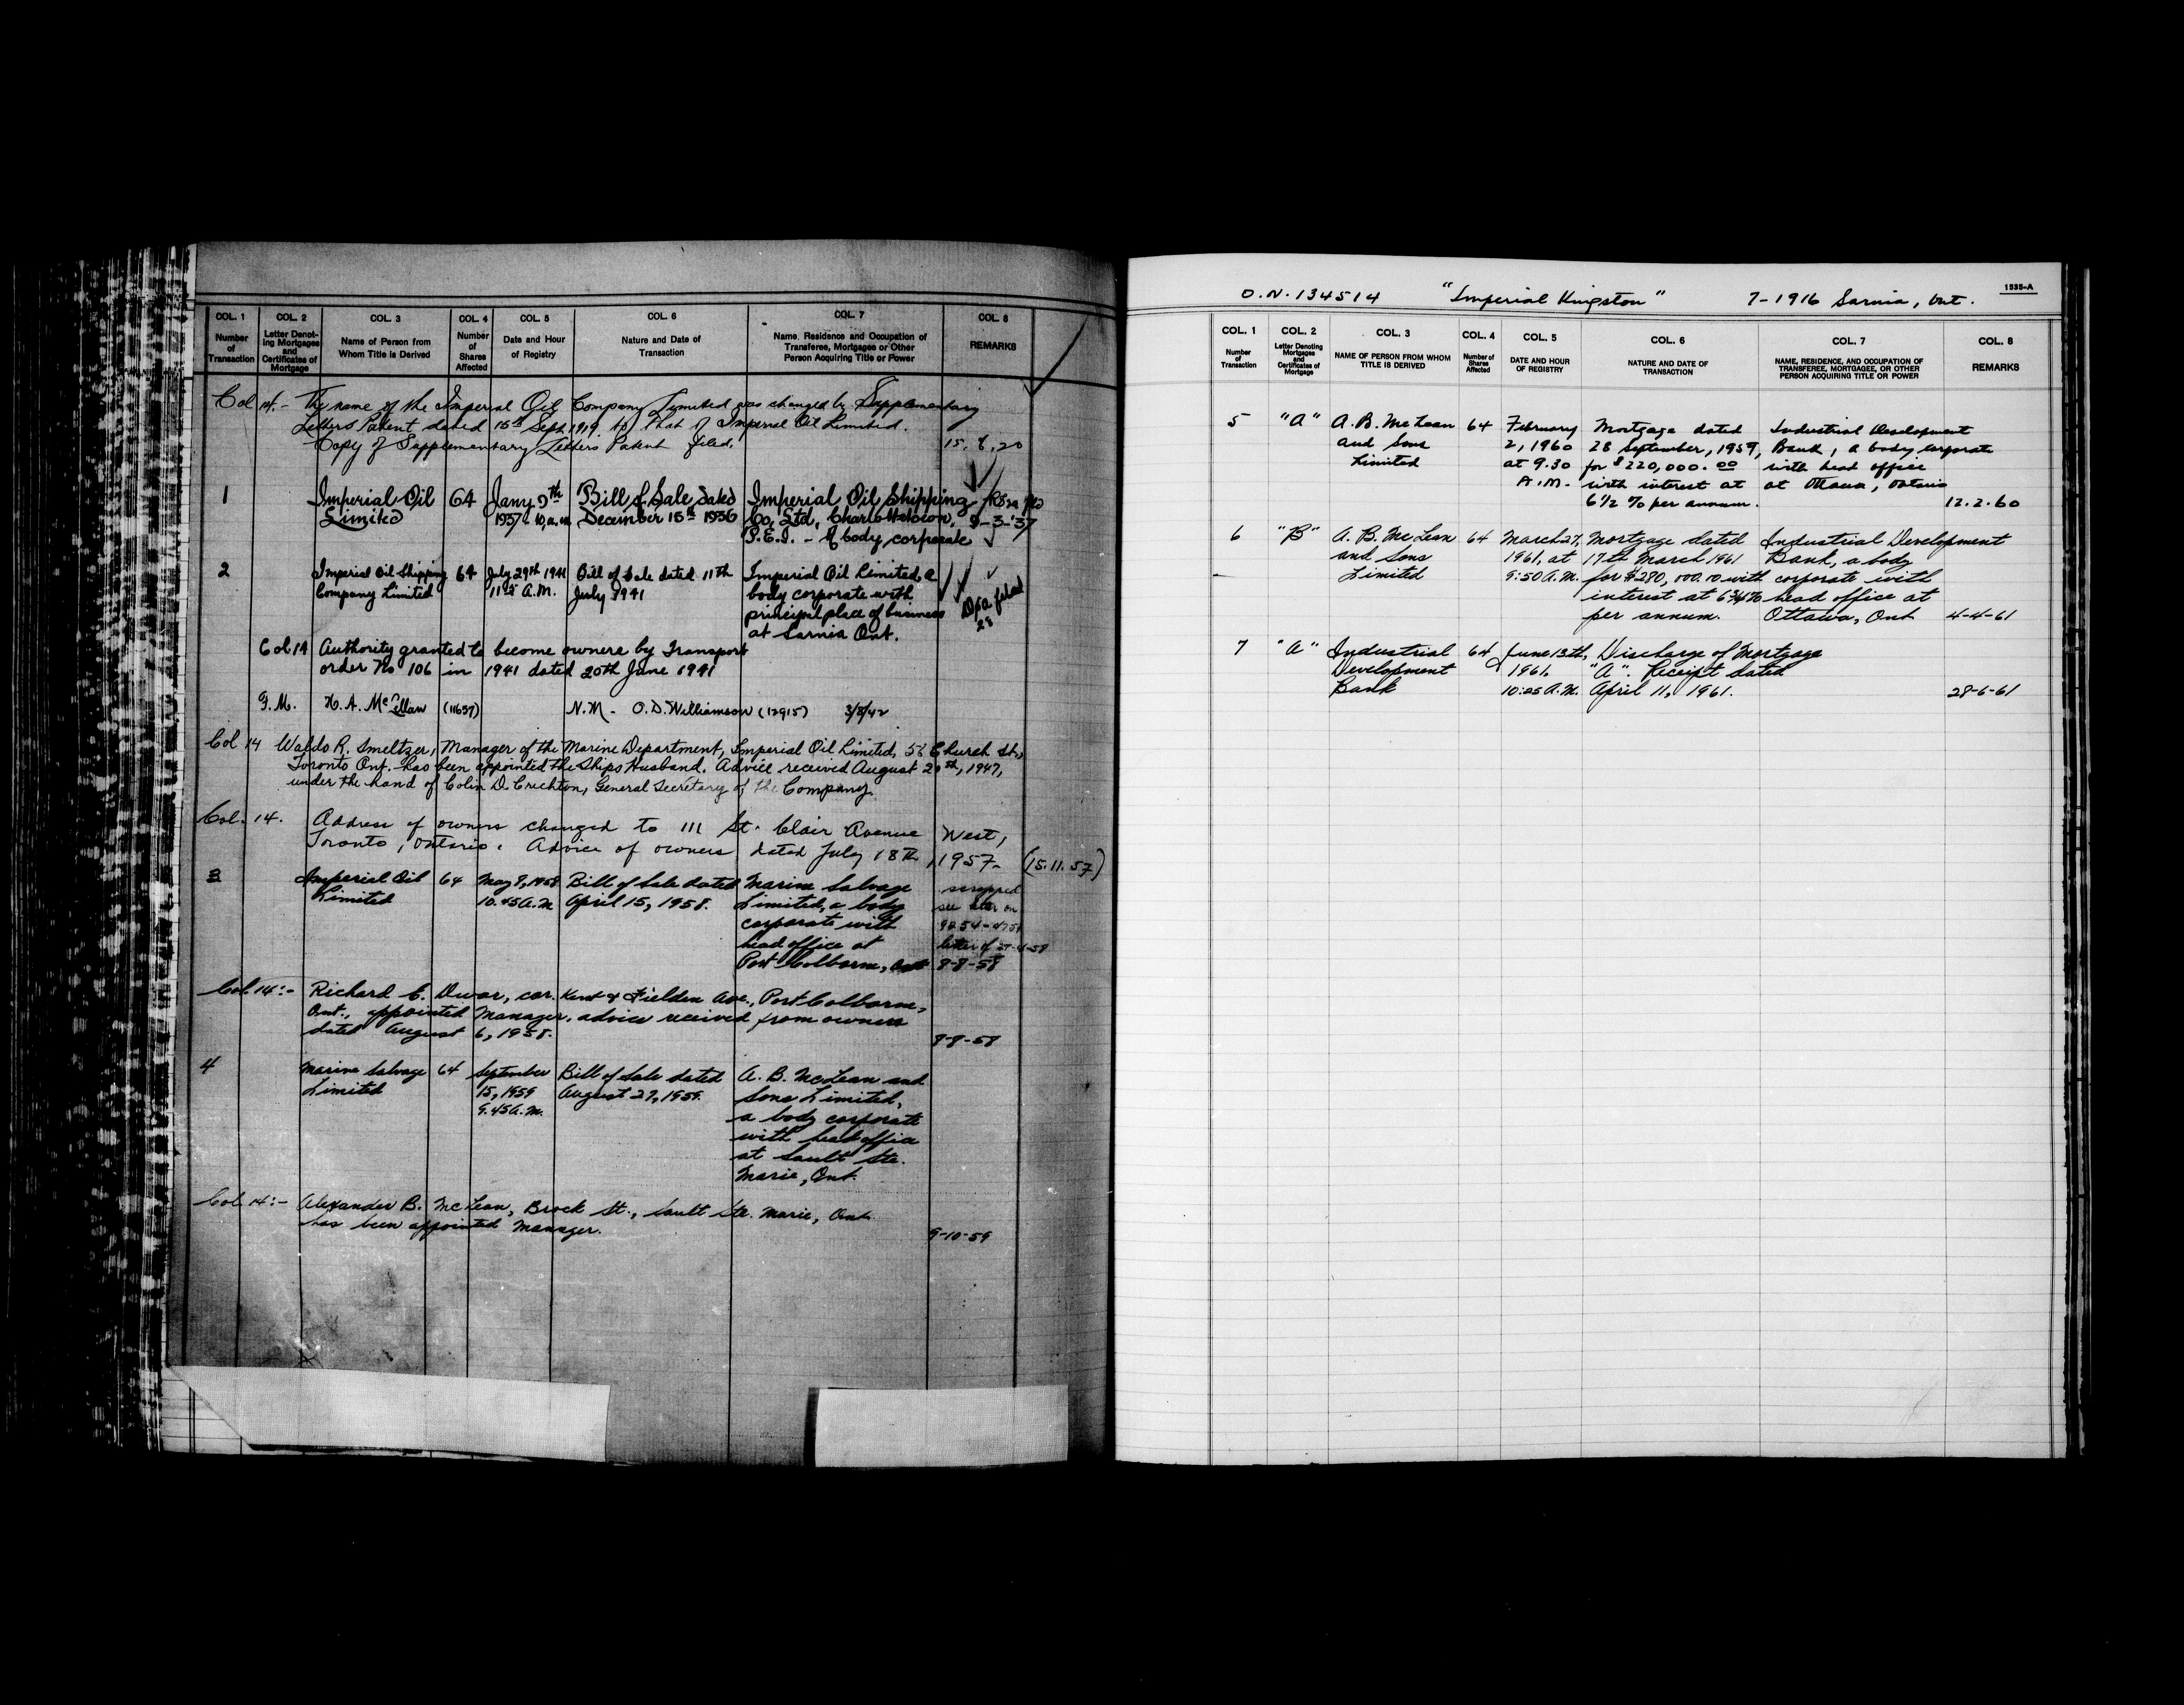 COL. 1 COL. 2 COL. 3 COL. 4 COL. 5 COL. 6 COL. 7 COL. 8
Number of Transaction
Letter Denot-ing Mortgages and Certificates of Mortgage
Name of Person from Whom Title is Derived
Number of Shares Affected
Date and Hour of Registry
Nature and Date of Transaction
Name, Residence and Occupation of Transferee, Mortgagee or Other Person Acquiring Title or Power
REMARKS
Col 14.- The name of the Imperial Oil Company Limited was changed by Supplementary
Letters Patent dated 15th Sept 1919 to that of Imperial Oil Limited.
Copy of Supplementary Letters Patent filed. 15.6.20
1 Imperial Oil 64 Jany 9th Bill of Sale dated Imperial Oil Shipping
Limited 1937 - 10, a.m. December 15th 1936 Co. Ltd, Charlottetown, 9-3-'37
P.E.I. - A body corporate
2 Imperial Oil Shipping 64 July 29th 1941 Bill of Sale dated 11th Imperial Oil Limited, a
Company Limited A.M. July 1941 body corporate with
principal place of business
at Sarnia Ont.
Col 14 Authority granted to become owners by Transport
order No 106 in 1941 dated 20th June 1941
G.M. H.A. McLellan (11657) N.M - O.D. Williamson (12915) 3/8/42
Col 14 Waldo R. Smeltzer, Manager of the Marine Department, Imperial Oil Limited, 56 Church St.,
Toronto Ont. has been appointed the Ships Husband. Advice received August 1947,
under the hand of Colin D. Crichton, General Secretary of the Company.
Col. 14. Address of owners changed to 111 St. Clair Avenue West,
Toronto, Ontario. Advice of owners dated July 18th, 1957- (15.11.57)
3 Imperial Oil 64 May 8, 1958 Bill of Sale dated Marine Salvage scrapped
Limited 10.45 A.M April 15, 1958. Limited, a body see letter on
corporate with
head office at letter of
Port Colborne, Ont 8-8-58
Col. 14:- Richard E. cor. Kent & Fielden Ave., Port Colborne,
Ont., appointed Manager. advice received from owners
dated August 6, 1958.
8-8-58
4 Marine Salvage 64 September Bill of Sale dated A. B. McLean and
Limited 15, 1959 August 27, 1959. Sons Limited,
9.45 A.M. a body corporate
with head office
at Sault Ste.
Marie, Ont.
Col. 14:- Alexander B. McLean, Brock St., Sault Ste. Marie, Ont.
has been appointed Manager.
9-10-59
O.N. 134514 "Imperial Kingston" 7-1916 Sarnia, Ont. 1535-A
COL. 1 COL. 2 COL. 3 COL. 4 COL. 5 COL. 6 COL. 7 COL. 8
Number of Transaction
Letter Denoting Mortgages and Certificates of Mortgage
NAME OF PERSON FROM WHOM TITLE IS DERIVED
Number of Shares Affected
DATE AND HOUR OF REGISTRY
NATURE AND DATE OF TRANSACTION
NAME, RESIDENCE, AND OCCUPATION OF TRANSFEREE, MORTGAGEE, OR OTHER PERSON ACQUIRING TITLE OR POWER
REMARKS
5 "A" A. B. McLean 64 February Mortgage dated Industrial Development
and Sons 2, 1960 28 September, 1959, Bank, a body corporate
Limited at 9.30 for $220,000.00 with head office
A.M. with interest at at Ottawa, Ontario
6 1/2 % per annum. 12.2.60
6 "B" A. B. McLean 64 March 27, Mortgage dated Industrial Development
and Sons 1961, at 17th March 1961 Bank, a body
Limited 9:50 A.M. for $280,000.00 with corporate with
interest at 6 3/4% head office at
per annum. Ottawa, Ont 4-4-61
7 "A" Industrial 64 June 13th, Discharge of Mortgage
Development 1961, "A". Receipt dated
Bank 10:25 A.M. April 11, 1961. 28-6-61